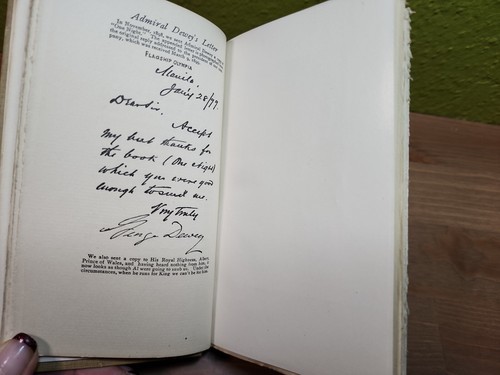 Admiral Dewey's Letter
In November, 1898, we sent Admiral Dewey a
"One Night."
the original reply addressed to
pany, which was received March 9, 1899.
FLAGSHIP OLYMPIA
Manila
Jan'y 28/99.
Dear Sir,
Accept
my best thanks for
the book (One Night)
which you were good
enough to send me.
Very truly
George Dewey
We also sent a copy to His Royal Highness, Albert,
Prince of Wales, and having heard nothing from him, it
now looks as though Al were going to Under the
circumstances, when he runs for King we can't be for him.